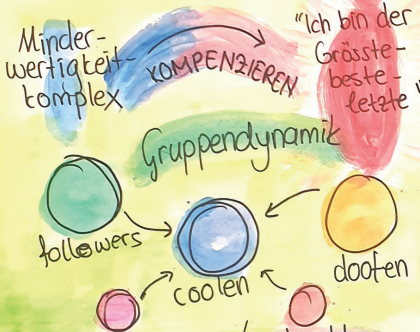 Minder-
wertigkeit-
komplex
KOMPENZIEREN
"Ich bin der
Grösste-
beste-
letzte
Gruppendynamik
followers
coolen
doofen